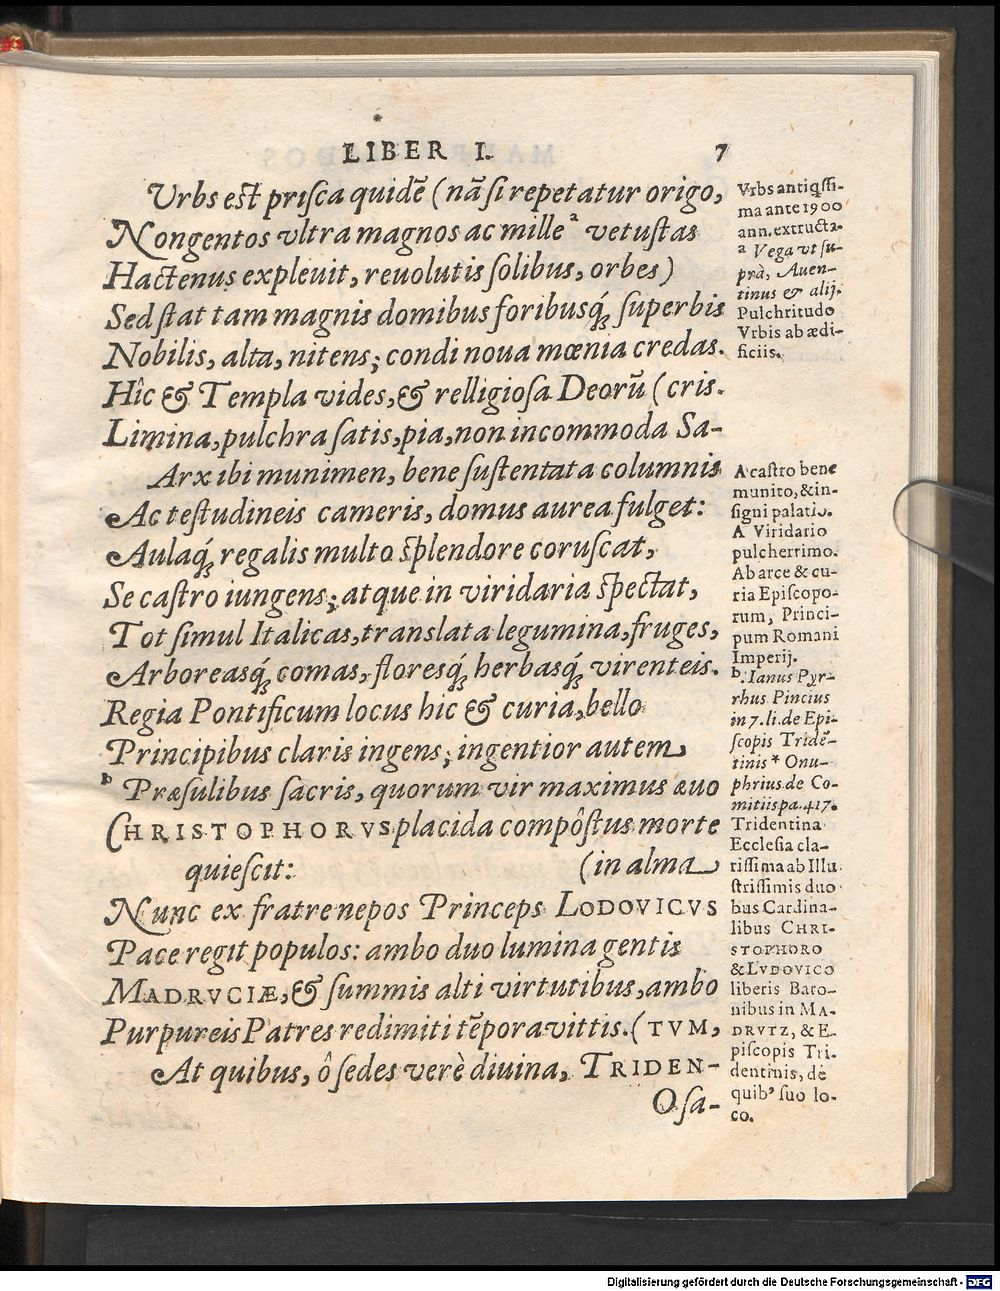 LIBER I. 7
Urbs est prisca quidē (nā si repetatur origo,
Nongentos vltra magnos ac mille ᵃ vetustas
Hactenus expleuit, reuolutis solibus, orbes)
Sed stat tam magnis domibus foribusq́; superbis
Nobilis, alta, nitens; condi noua mœnia credas.
Hîc & Templa vides, & relligiosa Deorū (cris.
Limina, pulchra satis, pia, non incommoda Sa-
Arx ibi munimen, bene sustentata columnis
Ac testudineis cameris, domus aurea fulget:
Aulaq́; regalis multo splendore coruscat,
Se castro iungens; atque in viridaria spectat,
Tot simul Italicas, translata legumina, fruges,
Arboreasq́; comas, floresq́; herbasq́; virenteis.
Regia Pontificum locus hic & curia, bello
Principibus claris ingens; ingentior autem
ᵇ Præsulibus sacris, quorum vir maximus æuo
CHRISTOPHORVS placida compôstus morte
quiescit: (in alma
Nunc ex fratre nepos Princeps LODOVICVS
Pace regit populos: ambo duo lumina gentis
MADRVCIÆ, & summis alti virtutibus, ambo
Purpureis Patres redimiti tēpora vittis. (TVM,
At quibus, ô sedes verè diuina, TRIDEN-
O sa-
Vrbs antiqssi-
ma ante 1900
ann. extructa.
ᵃ Vega vt su-
prà, Auen-
tinus & alij.
Pulchritudo
Vrbis ab ædi-
ficiis.
A castro bene
munito, & in-
signi palatio.
A Viridario
pulcherrimo.
Ab arce & cu-
ria Episcopo-
rum, Princi-
pum Romani
Imperij.
ᵇ. Ianus Pyr-
rhus Pincius
in 7. li. de Epi-
scopis Tridē-
tinis * Onu-
phrius de Co-
mitiis pa. 417.
Tridentina
Ecclesia cla-
rissima ab Illu
strissimis duo
bus Cardina-
libus CHRI-
STOPHORO
& LVDOVICO
liberis Baro-
nibus in MA-
DRVTZ, & E-
piscopis Tri-
dentinis, de
quib' suo lo-
co.
Digitalisierung gefördert durch die Deutsche Forschungsgemeinschaft - DFG